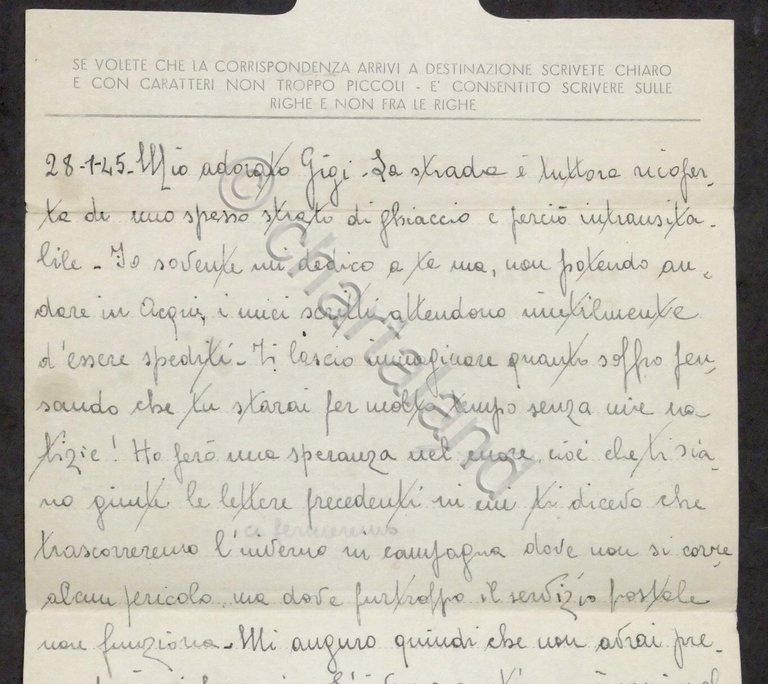 SE VOLETE CHE LA CORRISPONDENZA ARRIVI A DESTINAZIONE SCRIVETE CHIARO
E CON CARATTERI NON TROPPO PICCOLI - E' CONSENTITO SCRIVERE SULLE
RIGHE E NON FRA LE RIGHE
28-1-45-Mio adorato Gigi-La strada è tuttora ricoper-
ta di uno spesso strato di ghiaccio e perciò intransita-
bile-Io sovente mi dedico a te ma, non potendo an-
dare in Acqui, i miei scritti attendono inutilmente
d'essere spediti-Ti lascio immaginare quanto soffro pen-
sando che tu starai per molto tempo senza mie no
tizie! Ho però una speranza nel cuore, cioè che ti sia-
no giunte le lettere precedenti in cui ti dicevo che
ci fermeremo
trascorreremo l'inverno in campagna dove non si corre
alcun pericolo, ma dove purtroppo il servizio postale
non funziona-Mi auguro quindi che non avrai pre-
© chartaland